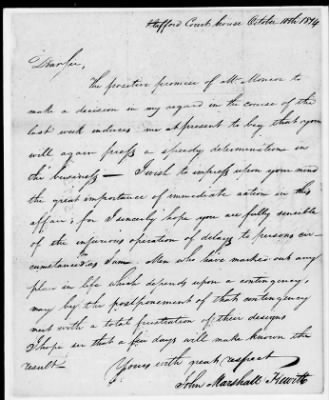 Stafford Court house October 10th 1814
Dear Sir,
The positive promise of Mr. Monroe to
make a decision in my regard in the course of the
last week induces me at present to beg that you
will again press a speedy determination in
the business— I wish to impress upon your mind
the great importance of immediate action in this
affair; for I sincerly hope you are fully sensible
of the injurious operation of delays to persons cir-
cumstanced as I am. Men who have marked out any
plan in life which depends upon a contingency,
may by the postponement of that contingency
meet with a total frustration of their designs
I hope sir that a few days will make known the
result—
Yours with great respect
John Marshall